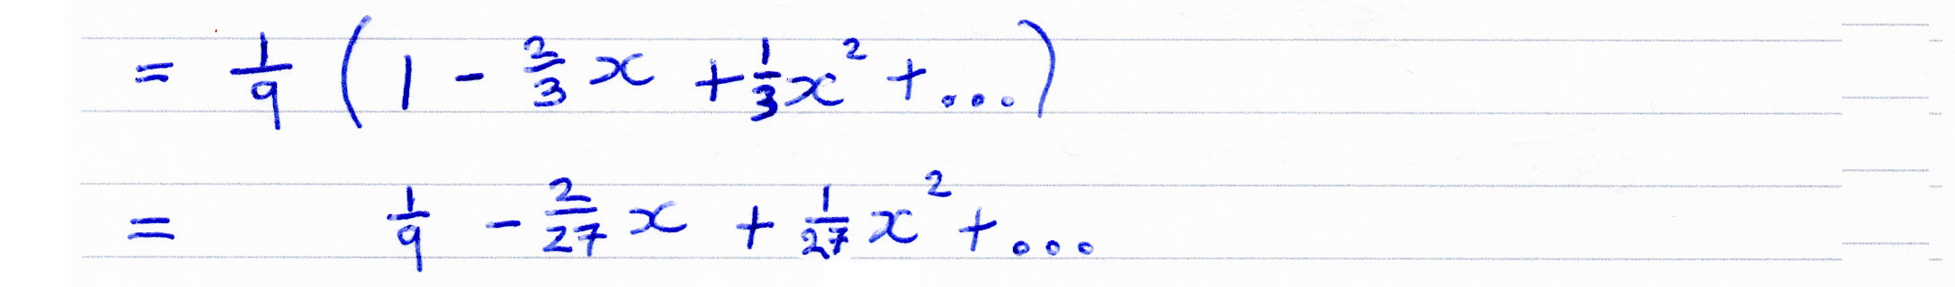 = 1/9 (1 - 2/3 x + 1/3 x² + ...)
= 1/9 - 2/27 x + 1/27 x² + ...